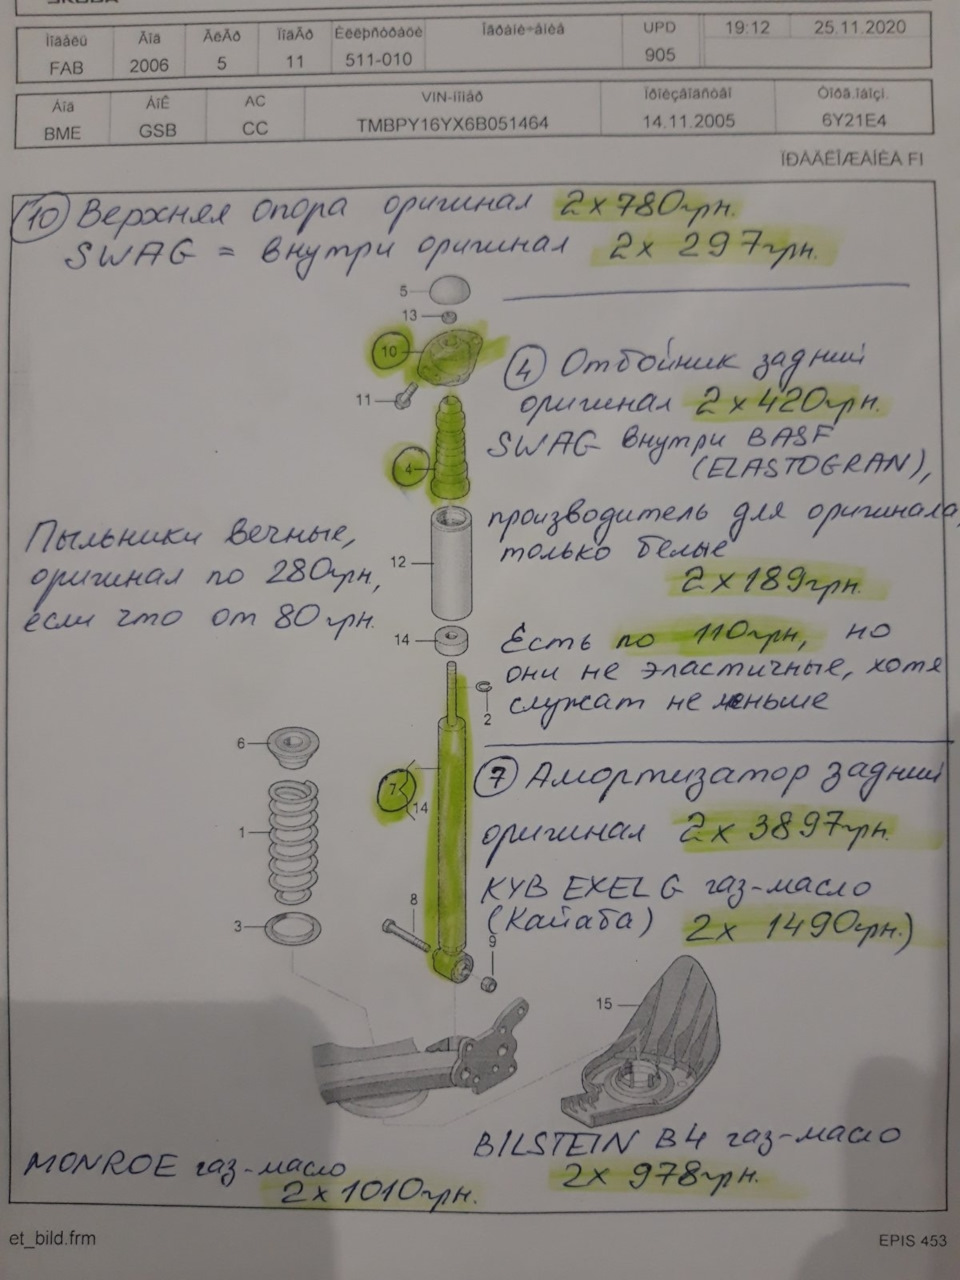 Ïîäåëü Ãîä ÃëÃð ÏîäÃð Èëëþñòðàöèÿ Ïðèìå÷àíèå UPD 19:12 25.11.2020
FAB 2006 5 11 511-010 905
AC VIN-íîìåð
BME GSB CC TMBPY16YX6B051464 14.11.2005 6Y21E4
10 Верхняя опора оригинал 2х780грн.
SWAG = внутри оригинал 2х 297грн.
5
13
10
11
4 Отбойник задний
оригинал 2х420грн.
SWAG внутри BASF
(ELASTOGRAN),
4
производитель для оригинала,
только белые
2х189грн.
Пыльники вечные,
оригинал по 280грн,
если что от 80грн.
12
14
Есть по 110грн, но
они не эластичные, хотя
служат не меньше
2
6
1
3
7
14
8
9
7 Амортизатор задний
оригинал 2х3897грн.
KYB EXEL G газ-масло
(Каяба) 2х 1490грн.)
15
BILSTEIN B4 газ-масло
2х 978грн.
MONROE газ-масло
2х1010грн.
et_bild.frm EPIS 453